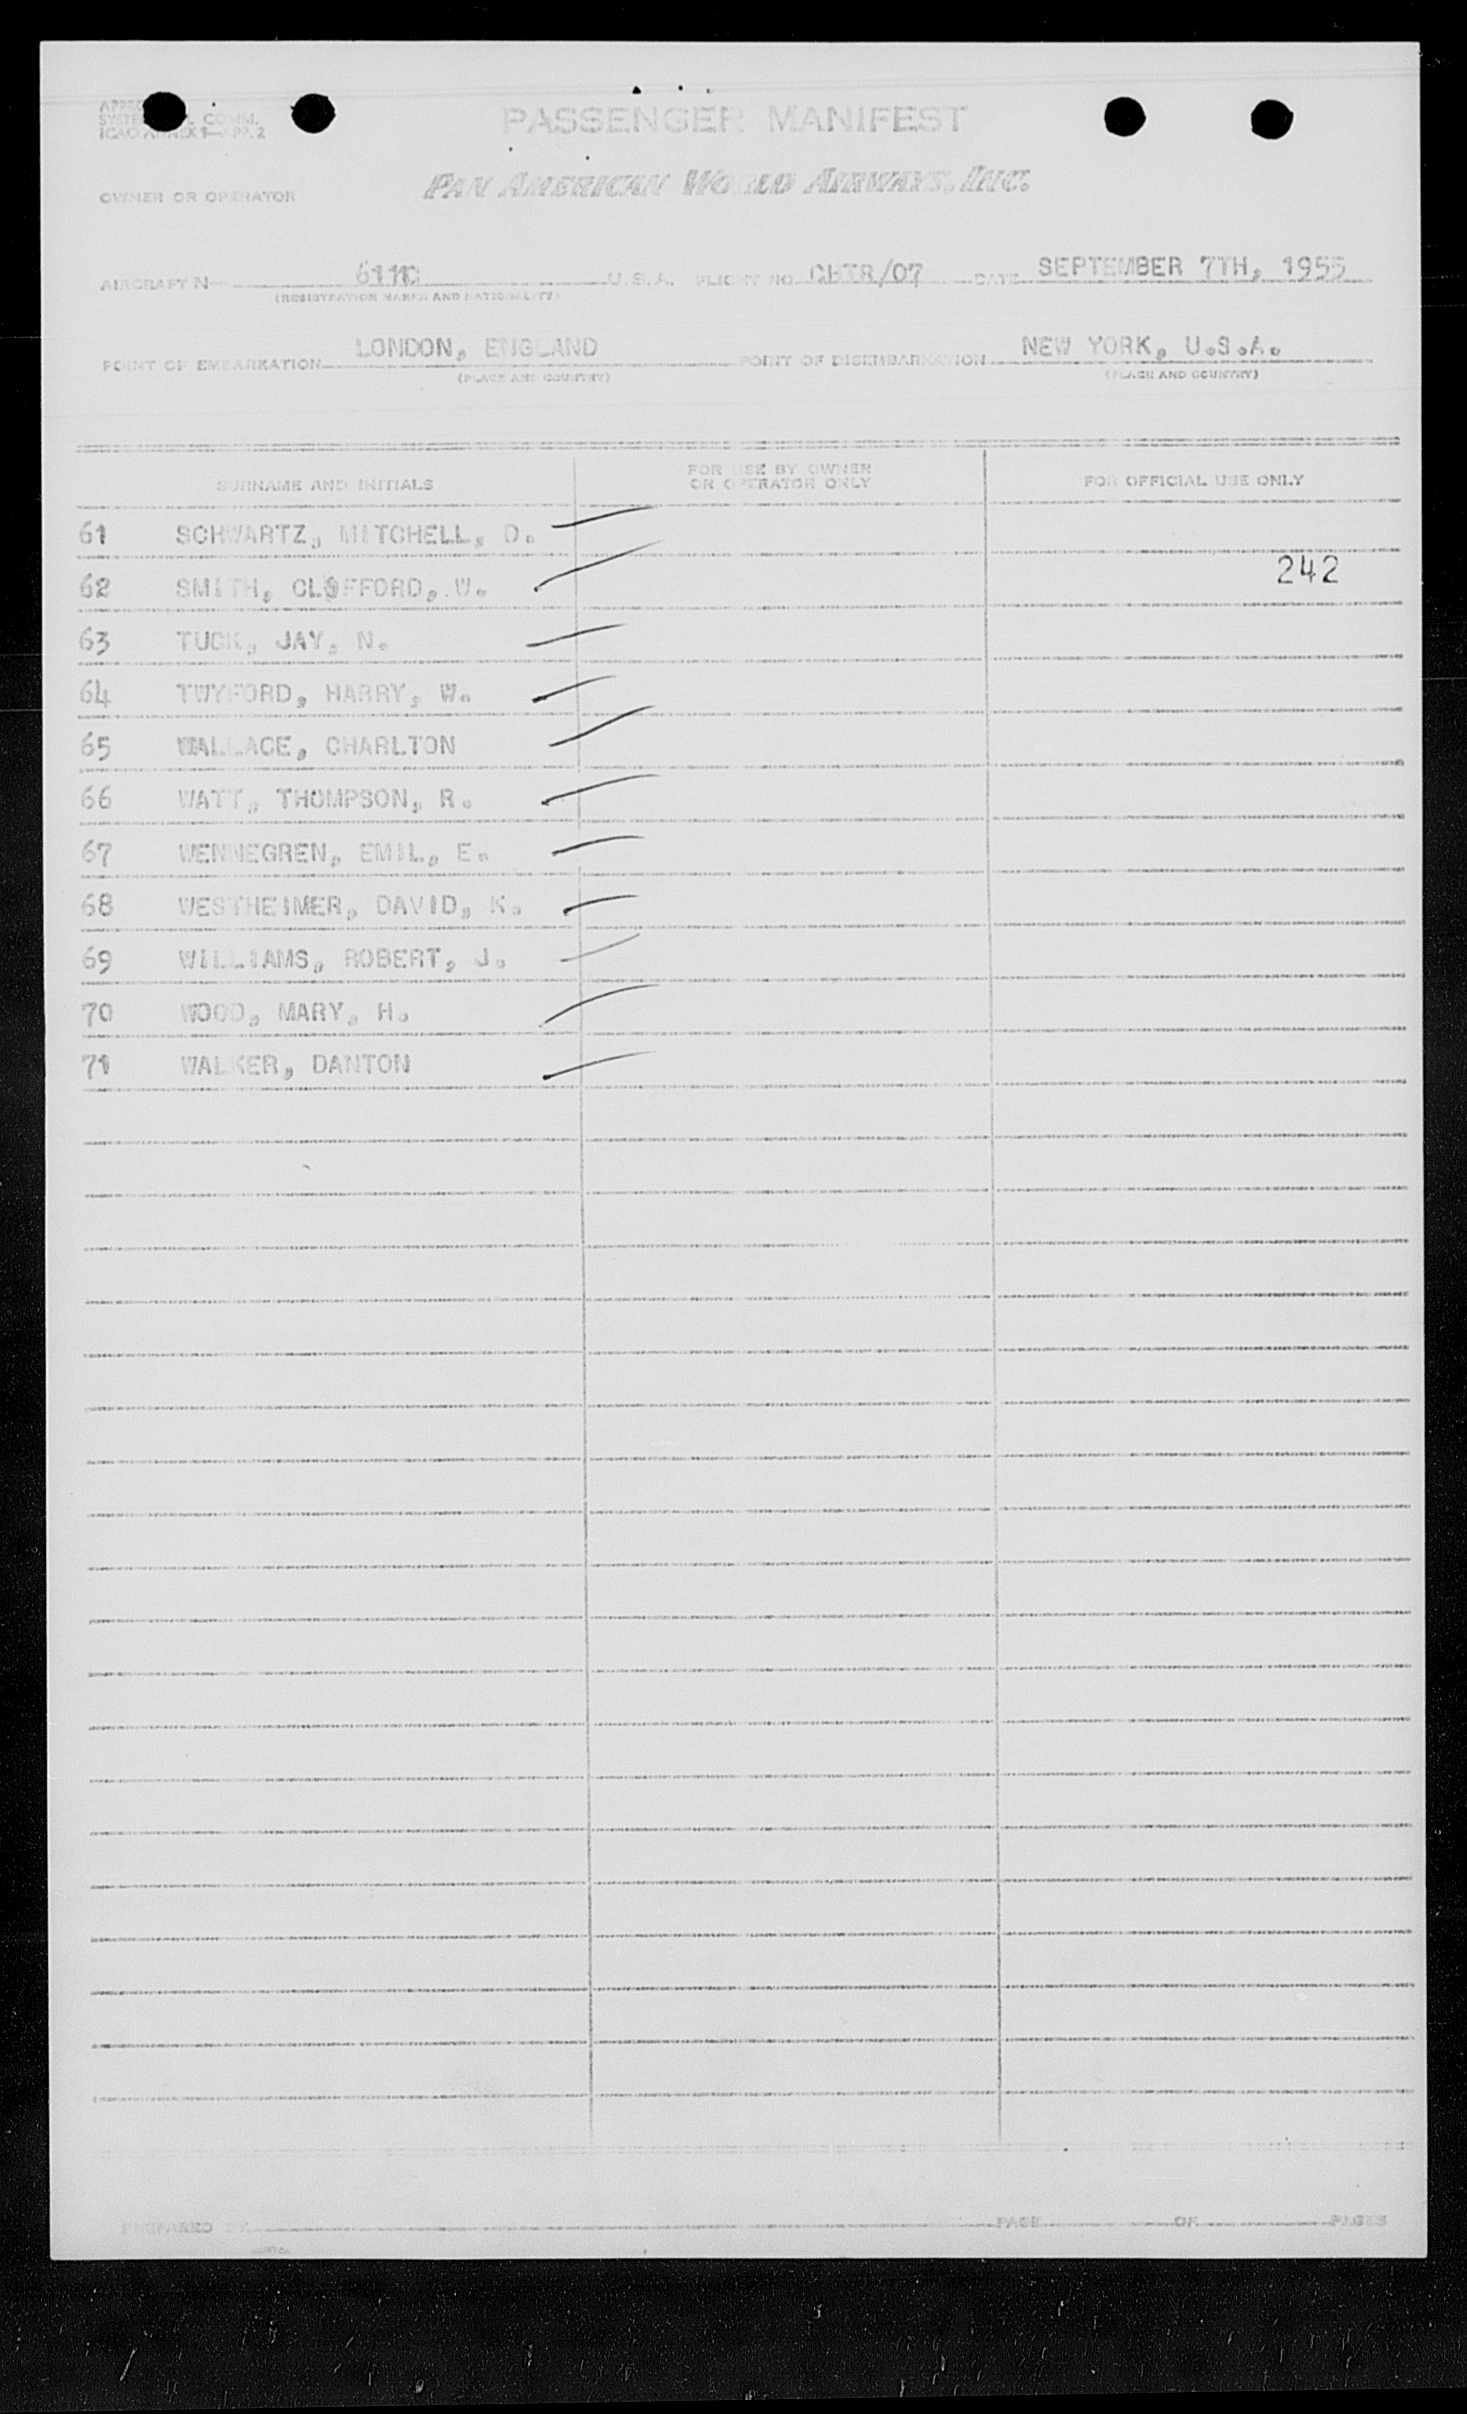 SYSTE L COMM.
PASSENGER MANIFEST
PAN AMERICAN WORLD AIRWAYS, INC.
OWNER OR OPERATOR
AIRCRAFT N U.S.A. FLIGHT NO. CHTR/07 DATE SEPTEMBER 7TH, 1955
(REGISTRATION MARKS AND NATIONALITY)
POINT OF EMBARKATION LONDON, ENGLAND POINT OF DISEMBARKATION NEW YORK, U.S.A.
(PLACE AND COUNTRY) (PLACE AND COUNTRY)
SURNAME AND INITIALS FOR USE BY OWNER OR OPERATOR ONLY FOR OFFICIAL USE ONLY
61 SCHWARTZ, MITCHELL, D.
242
62 SMITH, CLIFFORD, W.
63 TUCK, JAY, N.
64 TWYFORD, HARRY, W.
65 WALLACE, CHARLTON
66 WATT, THOMPSON, R.
67 WENNEGREN, EMIL, E.
68 WESTHEIMER, DAVID, K.
69 WILLIAMS, ROBERT, J.
70 WOOD, MARY, H.
71 WALKER, DANTON
PREPARED BY PAGE OF PAGES